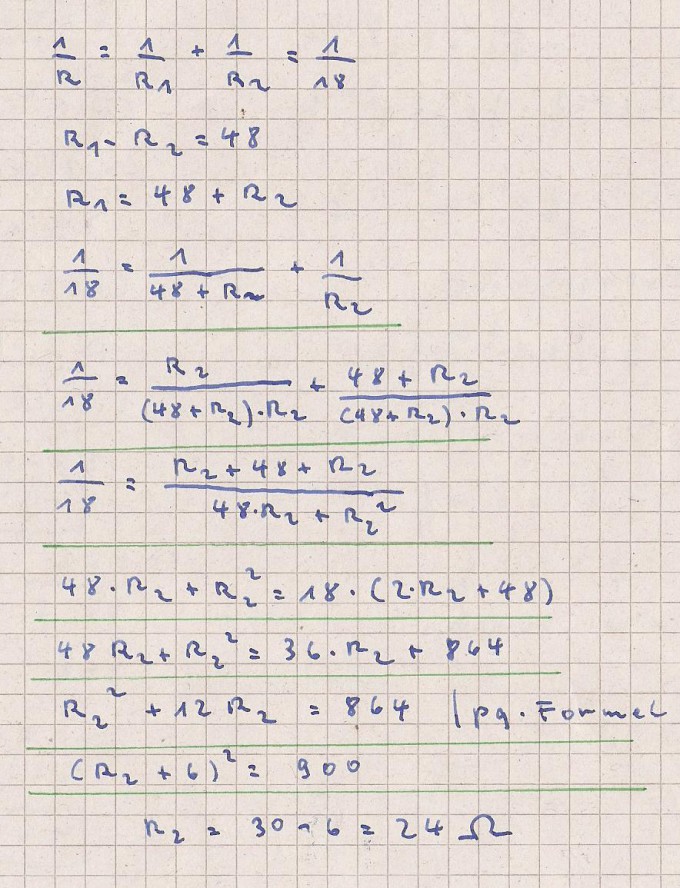 1/R = 1/R₁ + 1/R₂ = 1/18
R₁ - R₂ = 48
R₁ = 48 + R₂
1/18 = 1/(48 + R₂) + 1/R₂
1/18 = R₂/((48+R₂)·R₂) + (48 + R₂)/((48+R₂)·R₂)
1/18 = (R₂ + 48 + R₂)/(48·R₂ + R₂²)
48·R₂ + R₂² = 18·(2·R₂ + 48)
48 R₂ + R₂² = 36·R₂ + 864
R₂² + 12 R₂ = 864 | pq. Formel
(R₂ + 6)² = 900
R₂ = 30 - 6 = 24 Ω